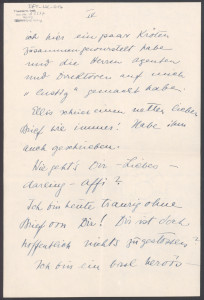 IV
ich hier ein paar Kisten
zusammengewurstelt habe
und die Herren Agenten
und Direktoren auf mich
"lustig" gemacht haben.
Elly schrieb einen netten lieben
Brief wie immer! Habe ihm
auch geschrieben.
Wie geht's Dir – Liebes –
darling – Affi?
Ich bin heute traurig ohne
Brief von Dir! Dir ist doch
hoffentlich nichts zugestossen?
Ich bin ein bissl nervös –